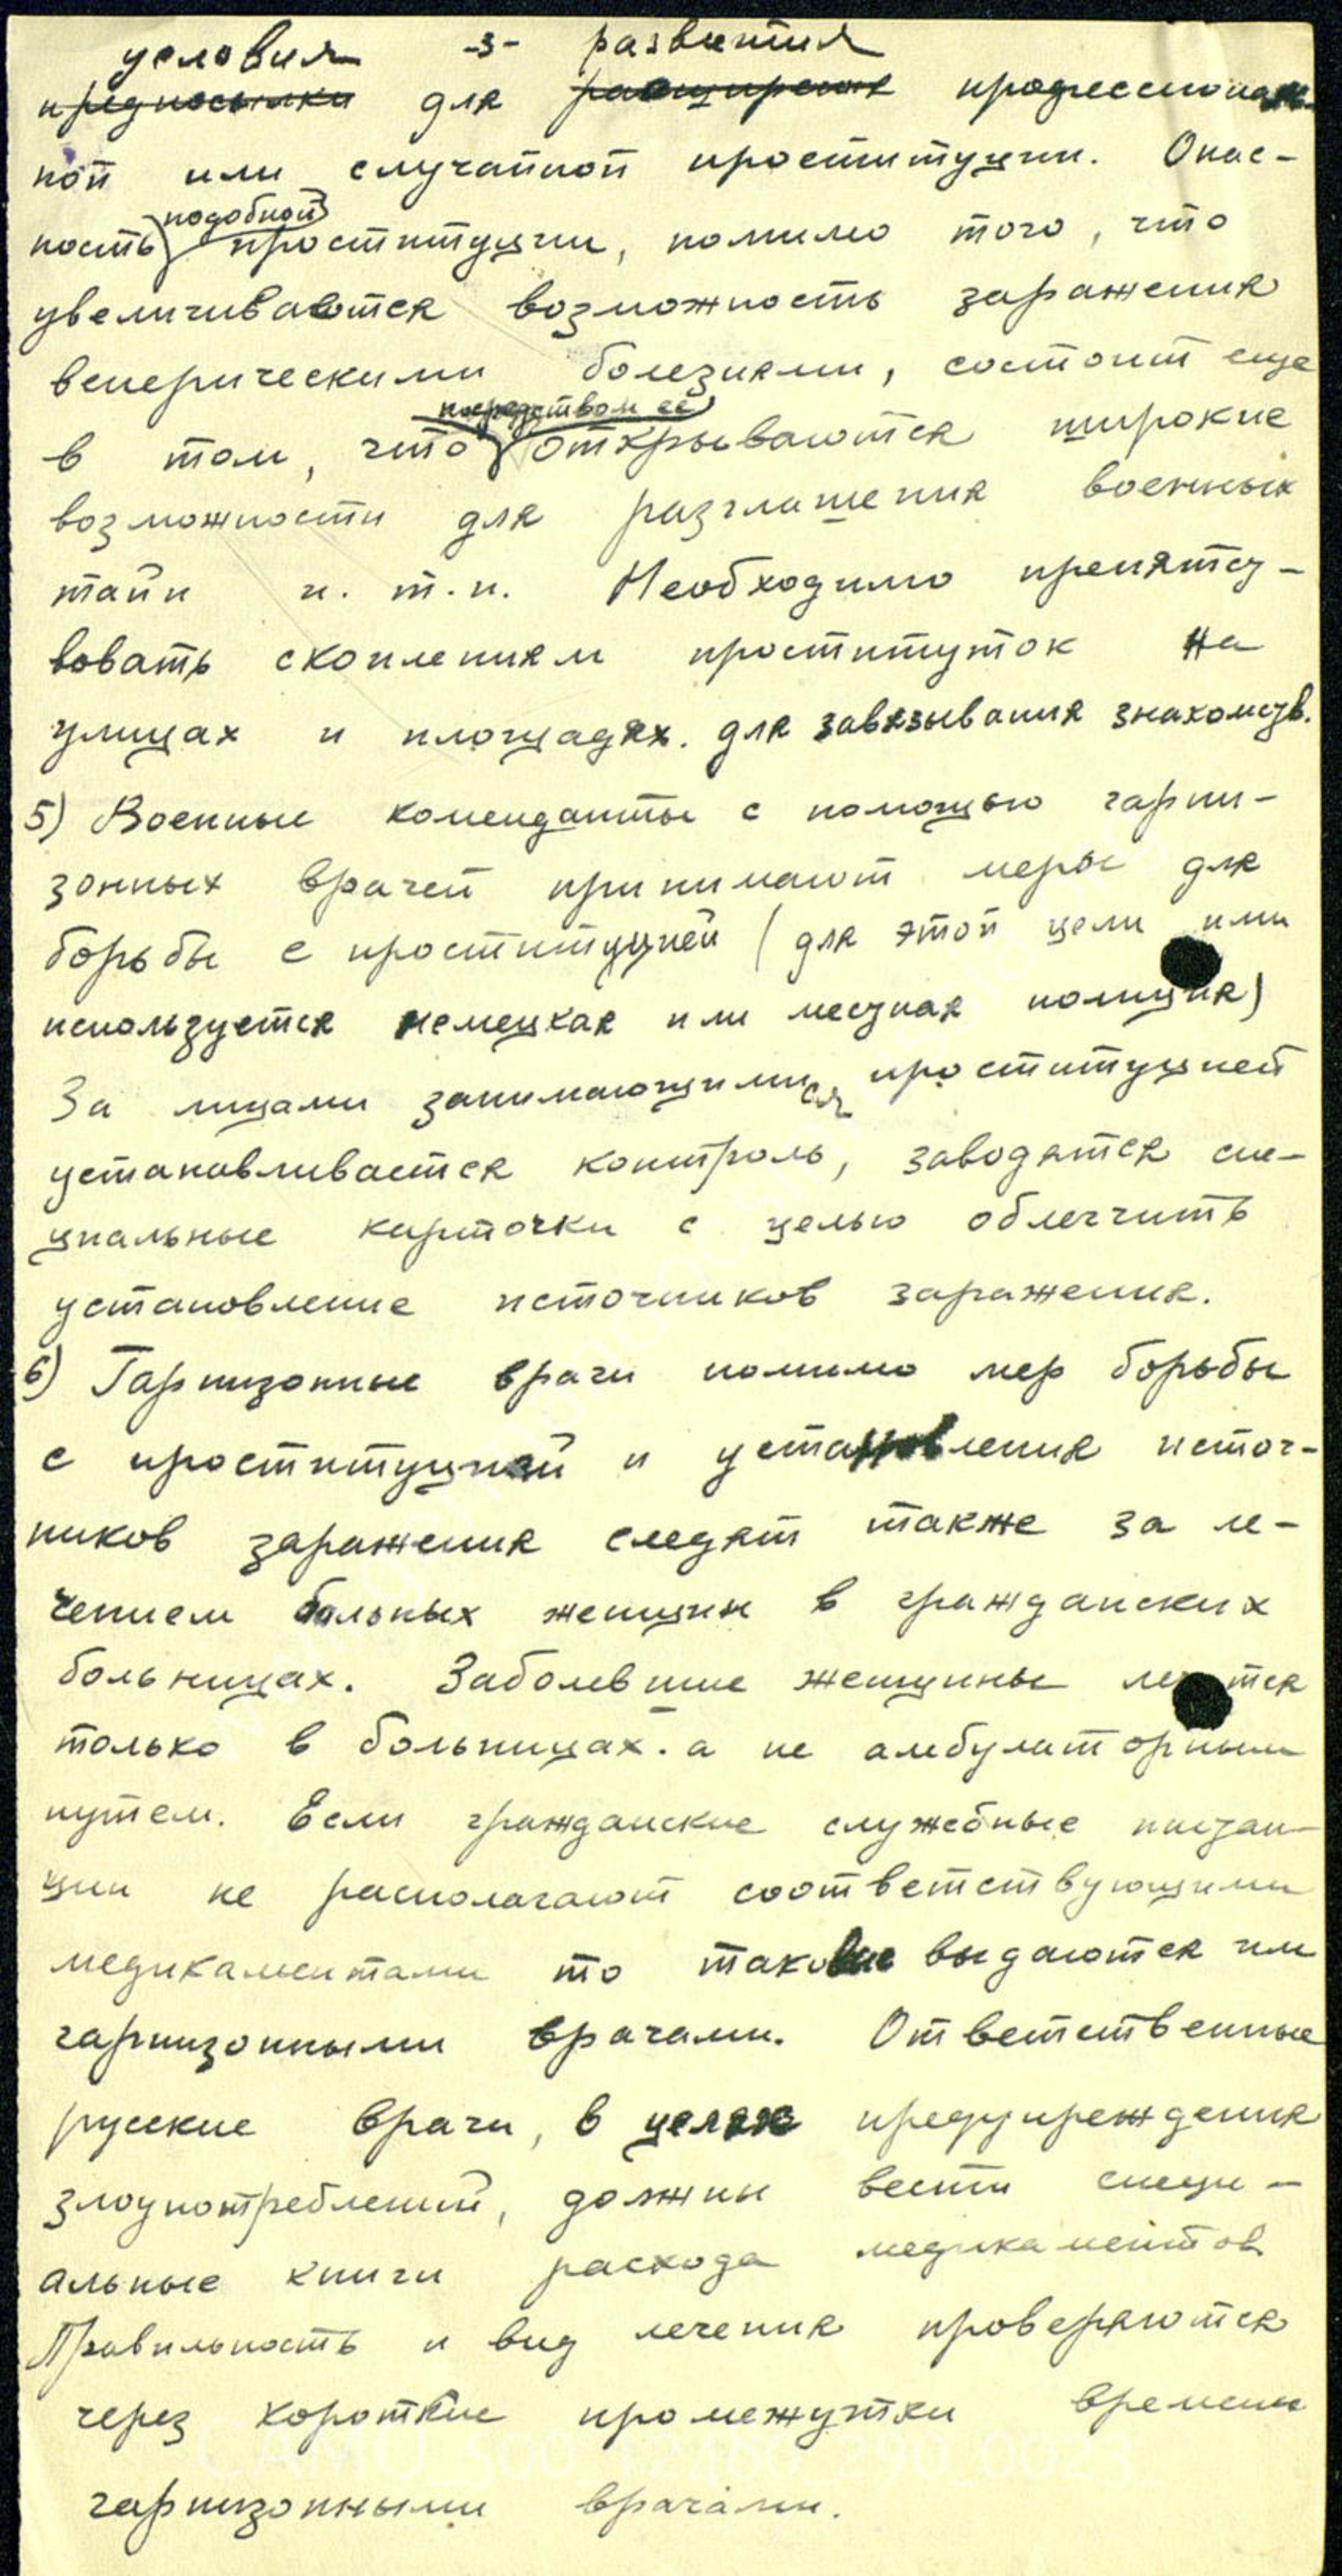 условия -3- развития
предпосылки для расширения профессиональ-
ной или случайной проституции. Опас-
подобной
ность проституции, помимо того, что
увеличивается возможность заражения
венерическими болезнями, состоит еще
посредством ее
в том, что открываются широкие
возможности для разглашения военных
тайн и. т.п. Необходимо препятст-
вовать скоплениям проституток на
улицах и площадях. для завязывания знакомств.
5) Военные коменданты с помощью гарни-
зонных врачей принимают меры для
борьбы с проституцией (для этой цели ими
используется немецкая или местная полиция)
За лицами занимающимися проституцией
устанавливается контроль, заводятся спе-
циальные карточки с целью облегчить
установление источников заражения.
6) Гарнизонные врачи помимо мер борьбы
с проституцией и установления источ-
ников заражения следят также за ле-
чением больных женщин в гражданских
больницах. Заболевшие женщины лечатся
только в больницах. а не амбулаторным
путем. Если гражданские служебные инстан-
ции не располагают соответствующими
медикаментами то таковые выдаются им
гарнизонными врачами. Ответственные
русские врачи, в целях предупреждения
злоупотреблений, должны вести специ-
альные книги расхода медикаментов
Правильность и вид лечения проверяются
через короткие промежутки времени
гарнизонными врачами.